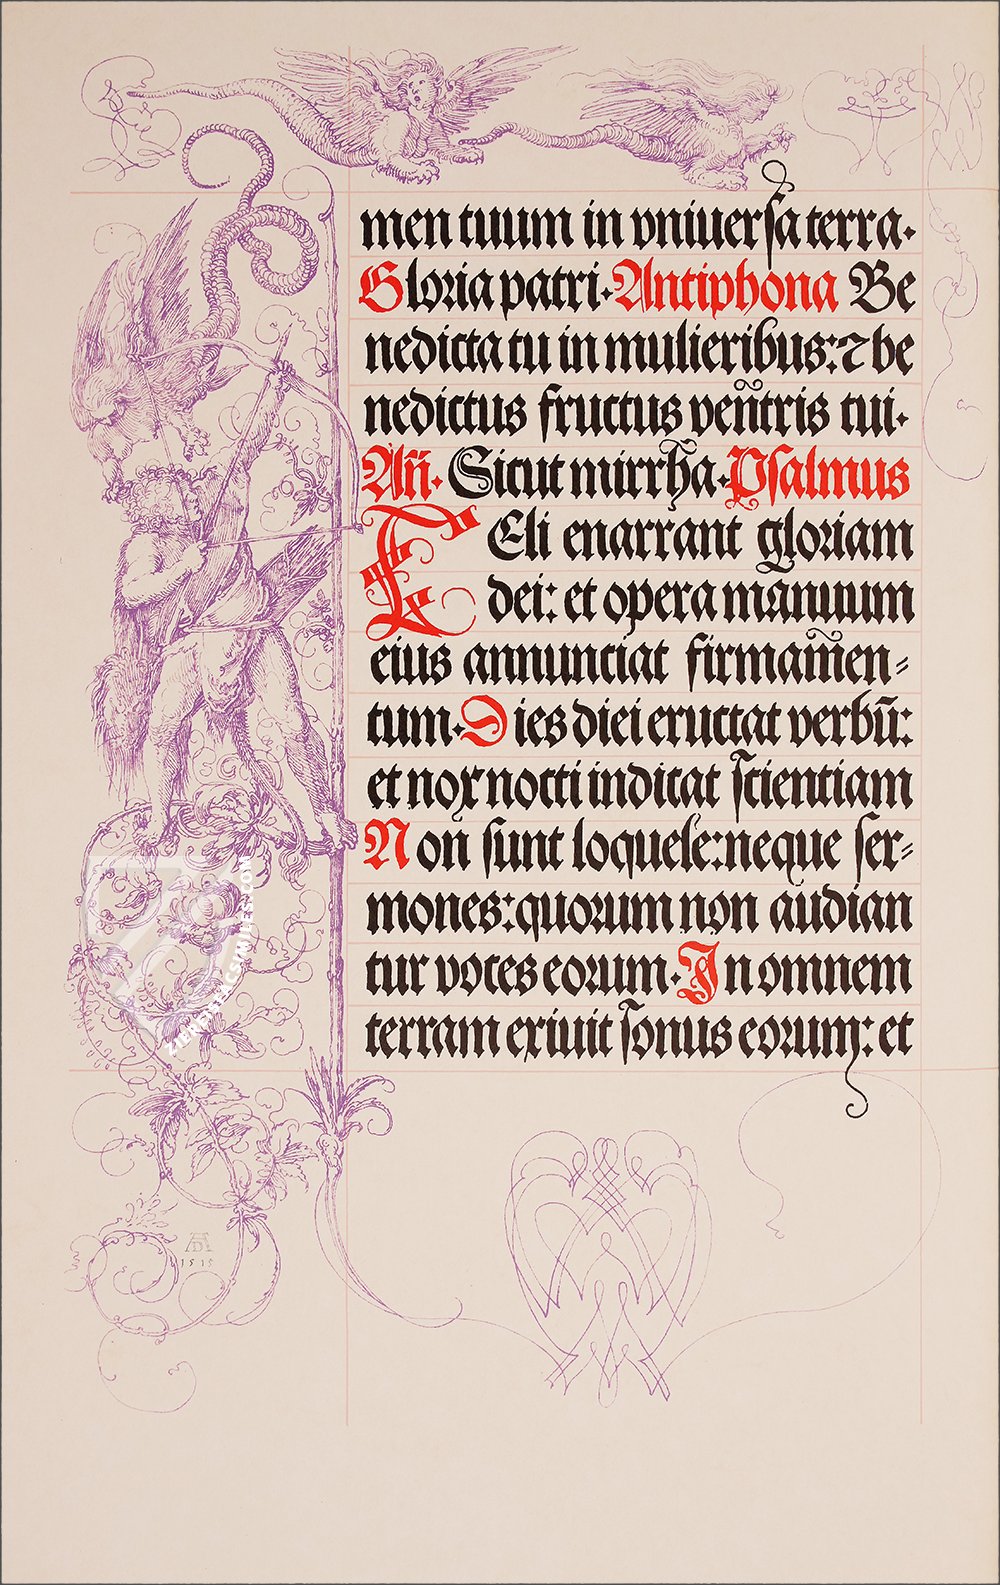 men tuum in vniuerſa terra.
Gloria patri. Antiphona Be
nedicta tu in mulieribus: ⁊ be
nedictus fructus ven̄tris tui.
Añ. Sicut mirrha. Pſalmus
CEli enarrant gloriam
dei: et opera manuum
eius annunciat firmamen⸗
tum. Dies diei eructat verbū:
et nox nocti indicat ſcientiam
Non ſunt loquele: neque ſer⸗
mones: quorum non audian
tur voces eorum. In omnem
terram exiuit ſonus eorum: et
AD
1515
ZIEREIS FACSIMILES.COM